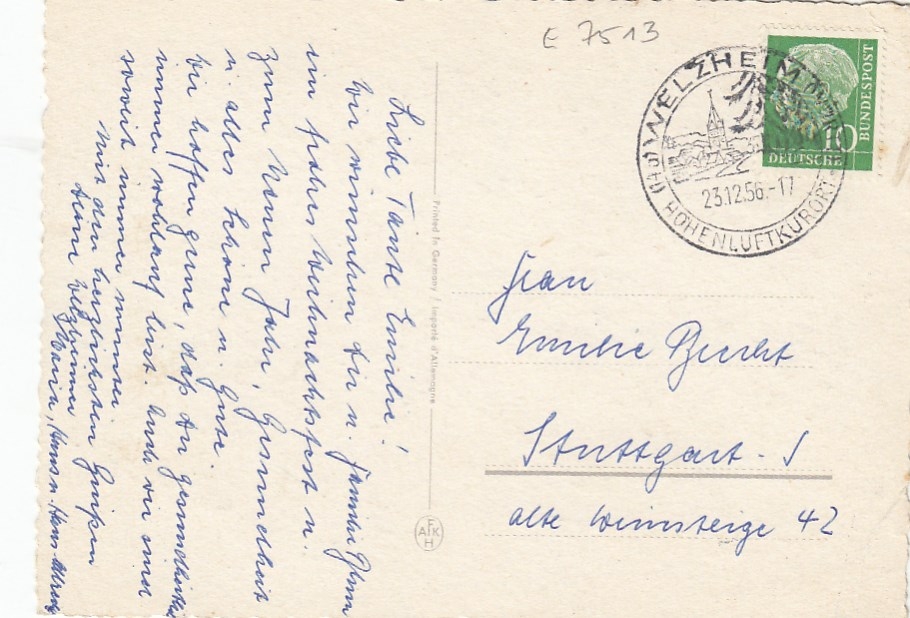 E 7513
(14a) WELZHEIM (Württ)
HÖHENLUFTKURORT
23.12.56.-17
10
DEUTSCHE
BUNDESPOST
Liebe Tante Emilie!
Wir wünschen Dir u. Familie
ein frohes Weihnachtsfest u.
zum Neuen Jahr, Gesundheit
u. alles Schöne u. Gute.
Wir hoffen gerne, daß Du gesundheitlich
immer wohlauf bist. Auch wir sind
soweit immer munter
Mit den herzlichsten Grüßen
Deine Welzheimer
Maria, Hans u. Hans-
Printed in Germany / Importé d'Allemagne
AFKH
Frau
Emilie
Stuttgart - S
alte Weinsteige 42